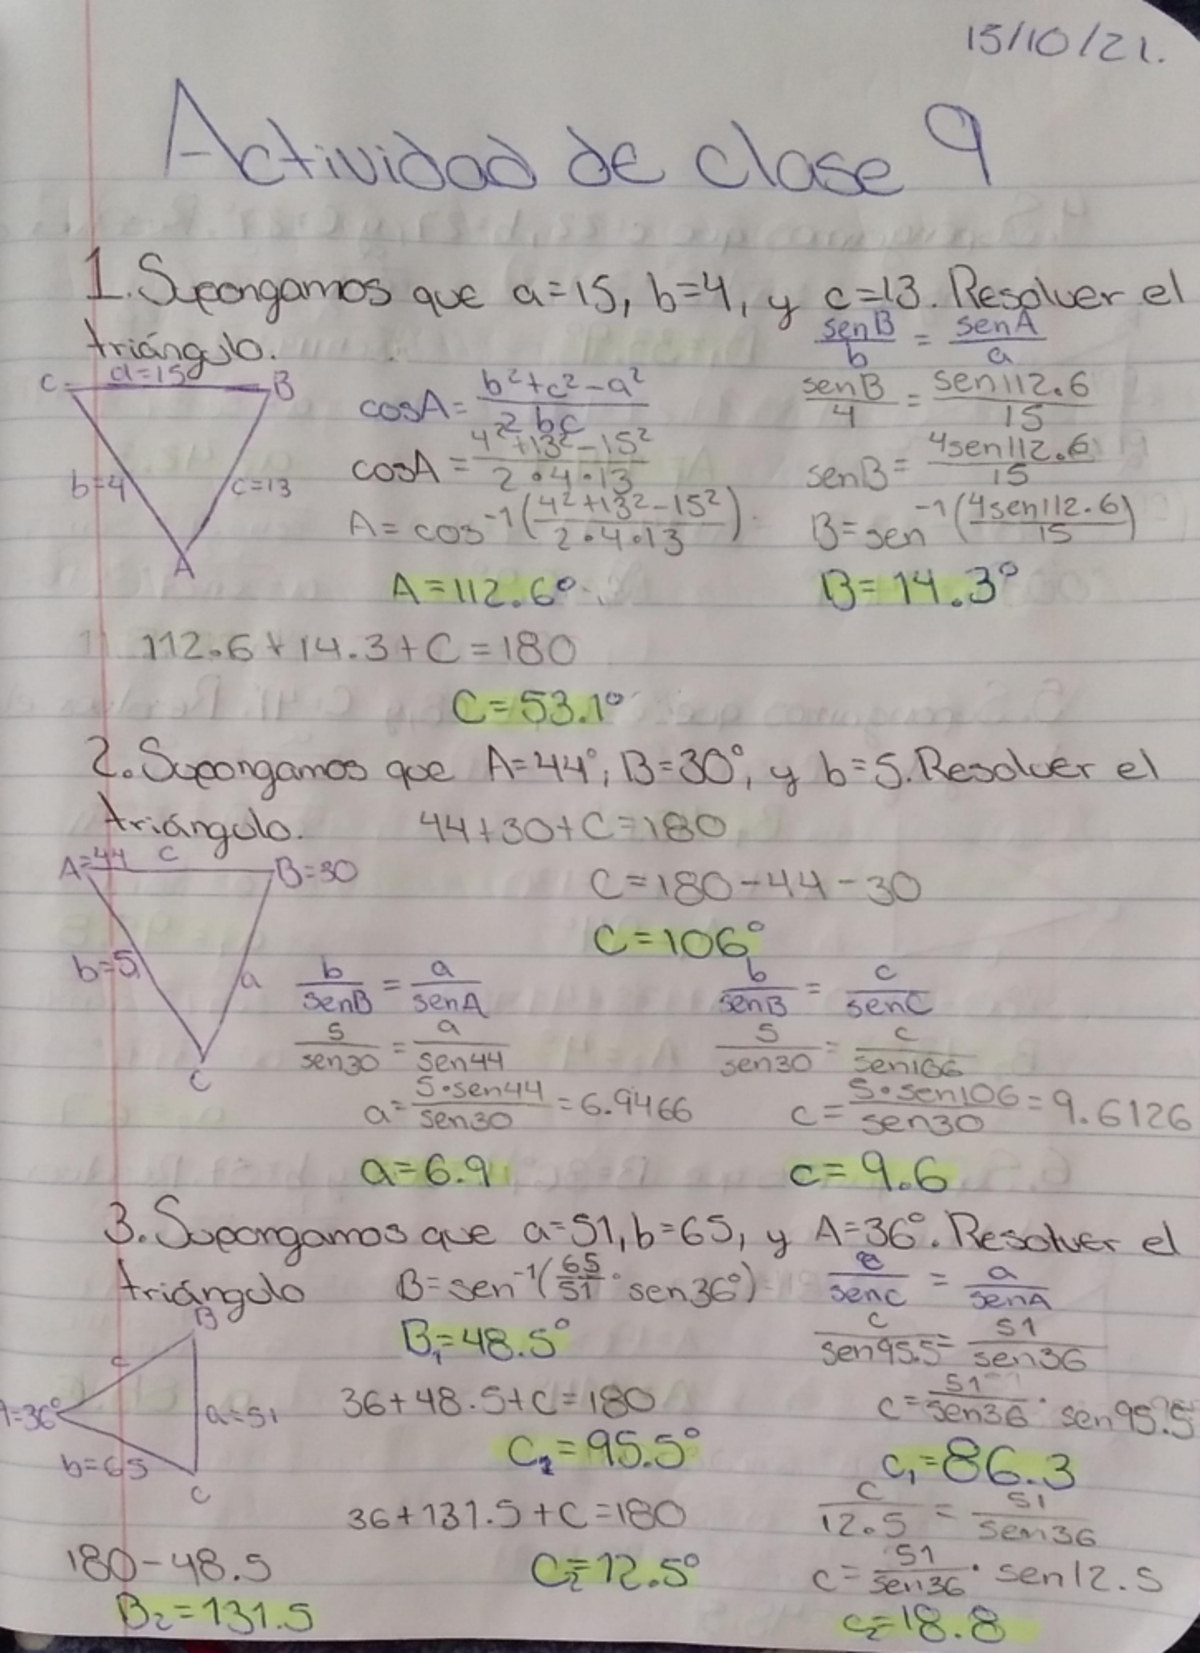 15/10/21.
Actividad de clase 9
1. Supongamos que a=15, b=4, y c=13. Resolver el
triángulo.
senB/b = senA/a
C a=15 B
b=4 c=13
A
cosA = (b²+c²-a²)/(2bc)
cosA = (4²+13²-15²)/(2•4•13)
A = cos⁻¹((4²+13²-15²)/(2•4•13))
A=112.6°
senB/4 = sen112.6/15
senB = 4sen112.6/15
B=sen⁻¹(4sen112.6/15)
B=14.3°
112.6+14.3+C=180
C=53.1°
2. Supongamos que A=44°, B=30°, y b=5. Resolver el
triángulo. 44+30+C=180
A=44 c B=30
b=5 a
C
C=180-44-30
C=106°
b/senB = a/senA
5/sen30 = a/sen44
a = 5•sen44/sen30 = 6.9466
a=6.9
b/senB = c/senC
5/sen30 = c/sen106
c = 5•sen106/sen30 = 9.6126
c=9.6
3. Supongamos que a=51, b=65, y A=36°. Resolver el
triángulo B=sen⁻¹(65/51 • sen36°)
B
c
A=36° a=51
b=65
C
B₁=48.5°
36+48.5+C=180
C₁=95.5°
36+131.5+C=180
C₂=12.5°
180-48.5
B₂=131.5
c/senC = a/senA
c/sen95.5 = 51/sen36
c = 51/sen36 • sen95.5
c₁=86.3
c/12.5 = 51/sen36
c = 51/sen36 • sen12.5
c₂=18.8